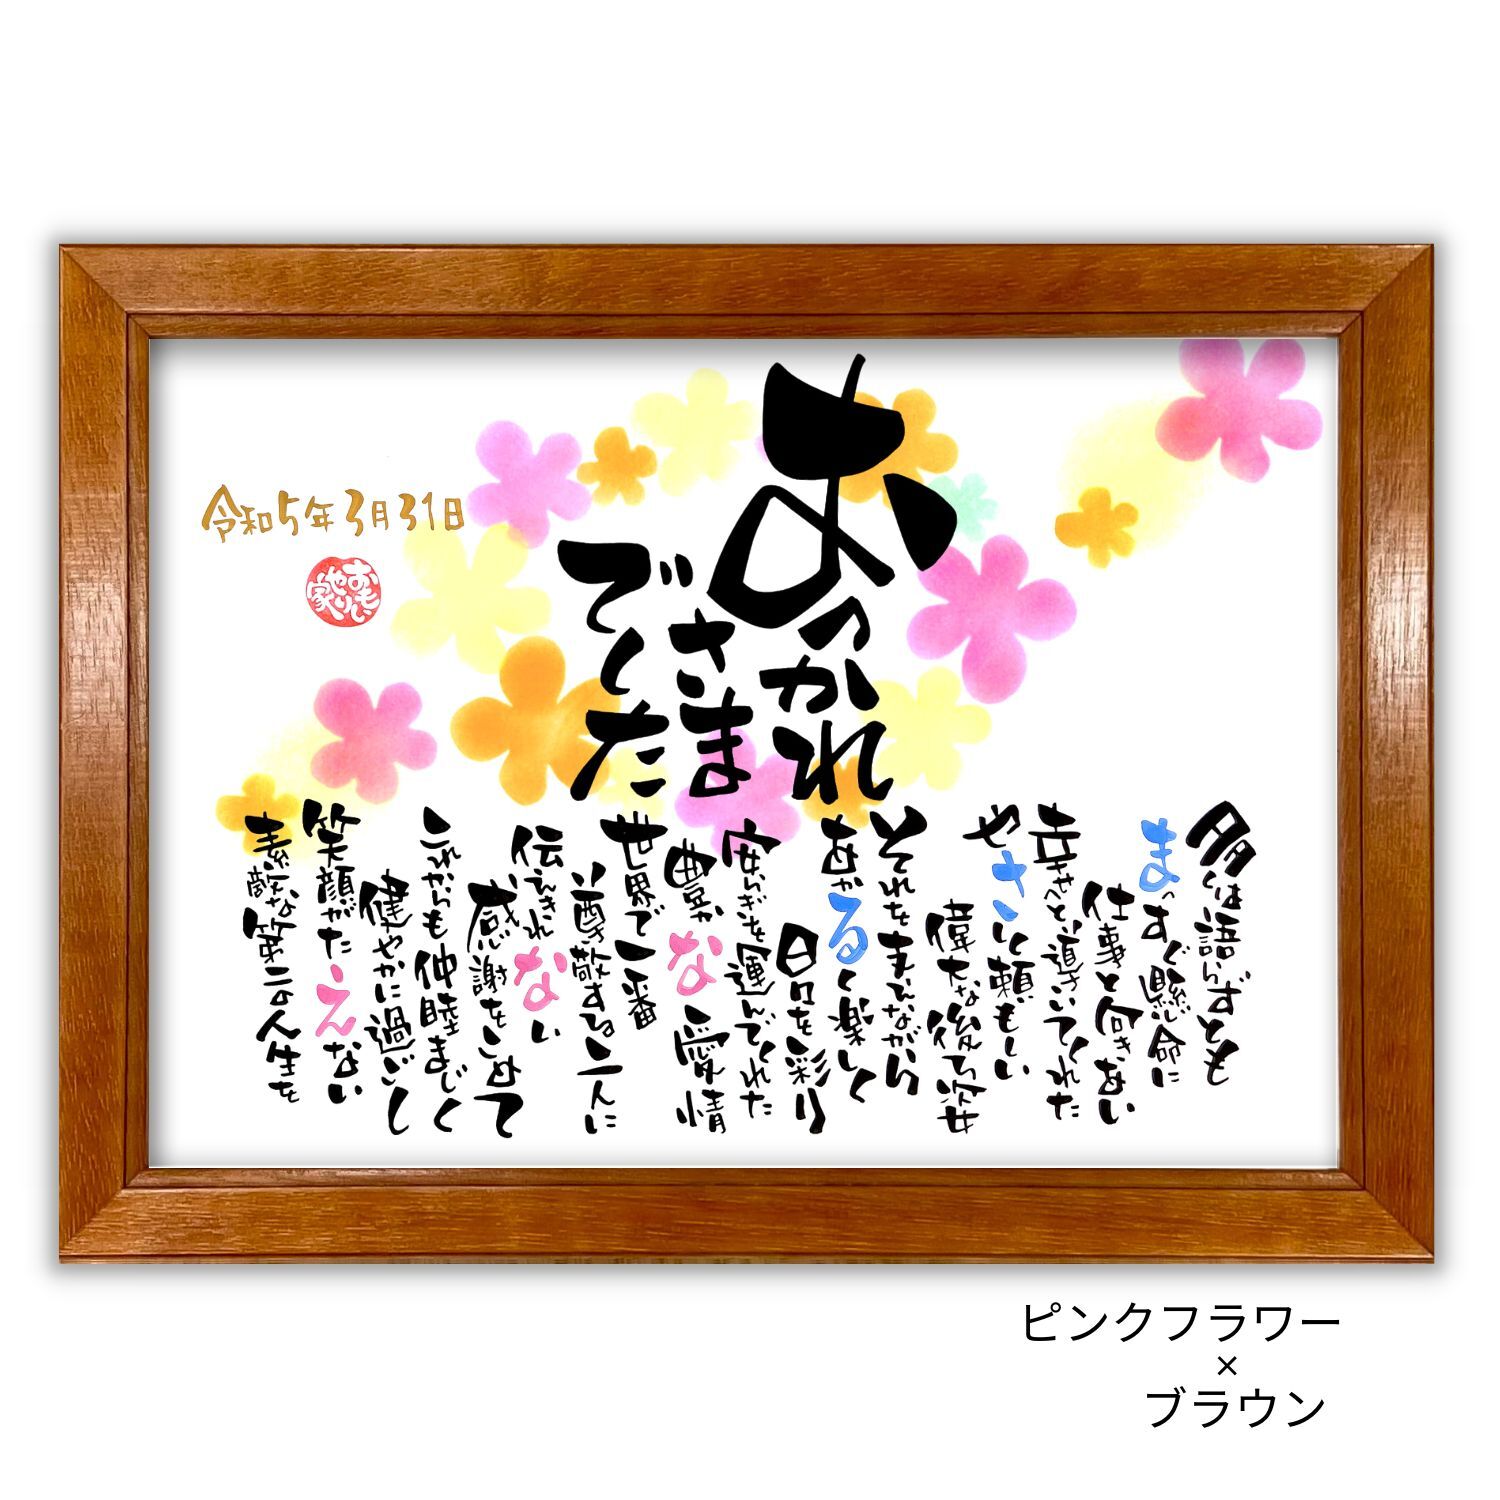 おつかれ
さま
でした
多くは語らずとも
まっすぐ懸命に
仕事と向きあい
幸せへと導いてくれた
やさしく頼もしい
偉大な後ろ姿
それを支えながら
あかるく楽しく
日々を彩り
安らぎを運んでくれた
豊かな愛情
世界で一番
尊敬する二人に
伝えきれない
感謝をこめて
これからも仲睦まじく
健やかに過ごし
笑顔がたえない
素敵な第二の人生を
令和5年3月31日
おもい
やり
家
ピンクフラワー
×
ブラウン